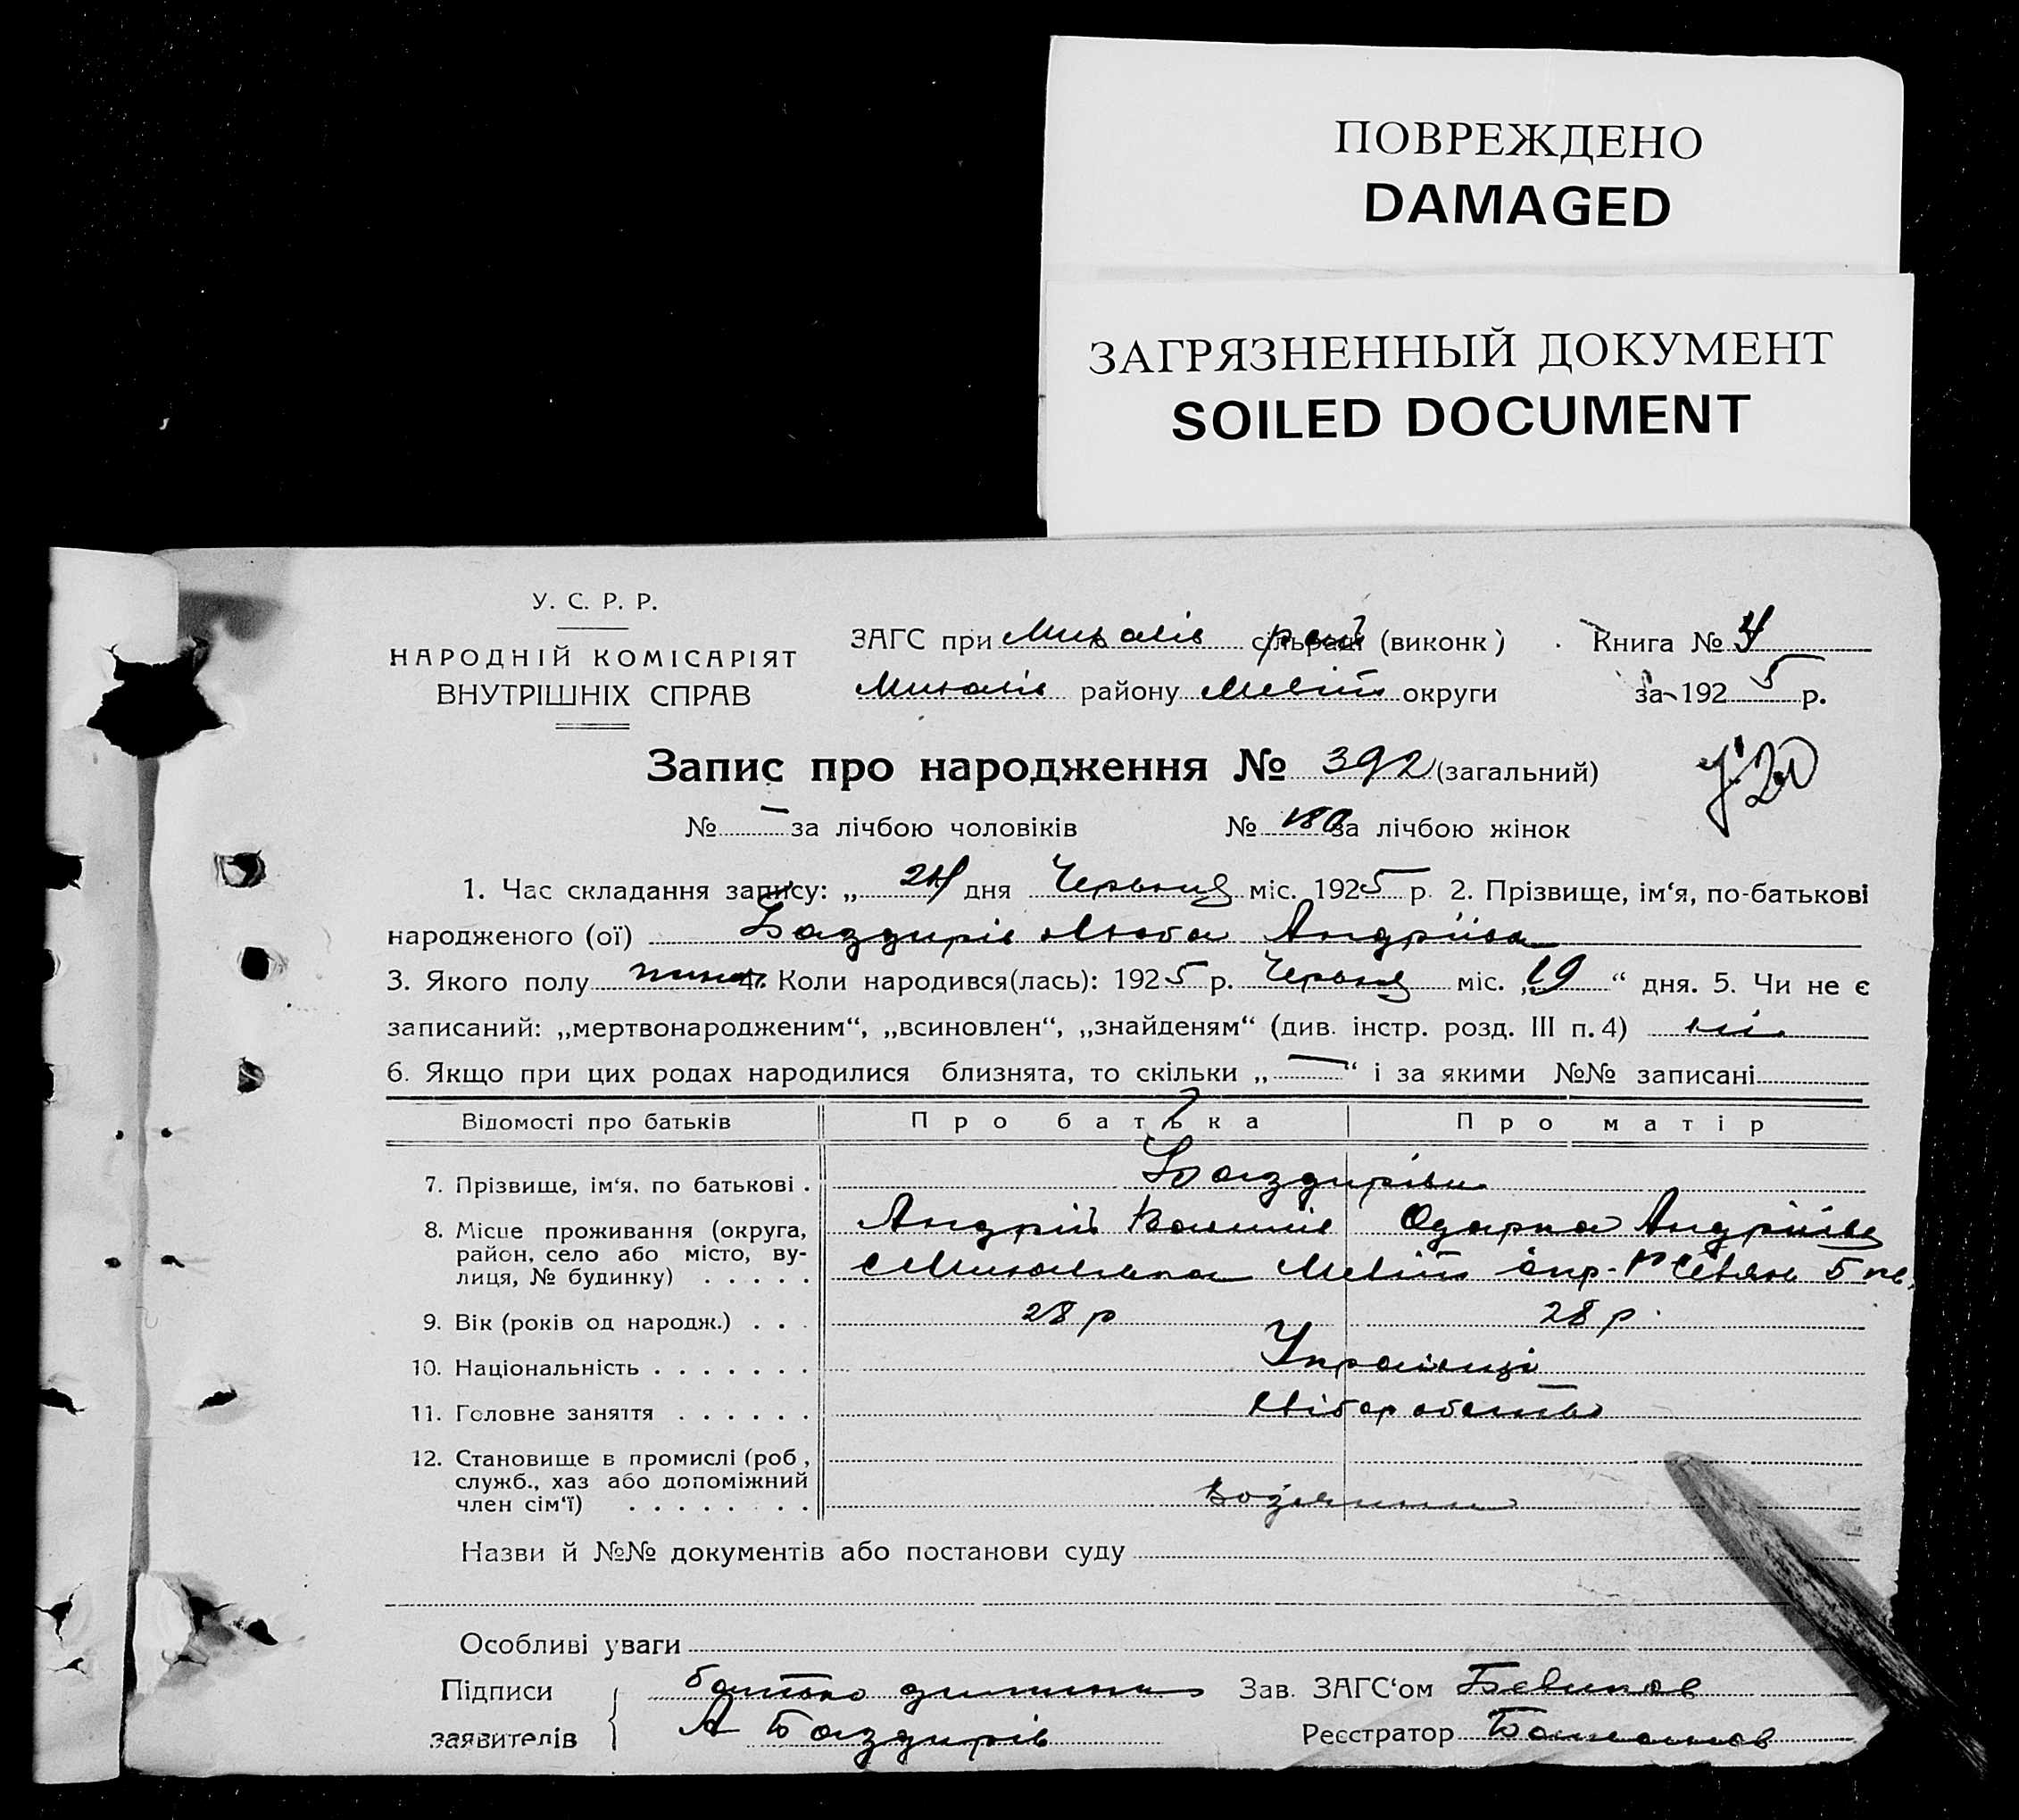 ПОВРЕЖДЕНО
DAMAGED
ЗАГРЯЗНЕННЫЙ ДОКУМЕНТ
SOILED DOCUMENT
У. С. Р. Р.
НАРОДНІЙ КОМІСАРІЯТ
ВНУТРІШНІХ СПРАВ
ЗАГС при Микалів сільраді (виконк) Книга № 4
району Меліт округи за 1925 р.
Запис про народження № 392 (загальний)
№ — за лічбою чоловіків № 180 за лічбою жінок
1. Час складання запису: „24 дня Червня міс. 1925 р. 2. Прізвище, ім‘я, по-батькові
народженого (ої) Баздирів Люба Андріїва
3. Якого полу жіноч. 4. Коли народився(лась): 1925 р. Червня міс. „19“ дня. 5. Чи не є
записаний: „мертвонародженим“, „всиновлен“, „знайденям“ (див. інстр. розд. III п. 4) ні
6. Якщо при цих родах народилися близнята, то скільки „—“ і за якими №№ записані
Відомості про батьків Про батька Про матір
7. Прізвище, ім‘я, по батькові . Баздиріви
8. Місце проживання (округа, Андрій Одарка Андріїва
район, село або місто, ву-
лиця, № будинку) . . . . . Меліт окр.
9. Вік (років од народж.) . . . 28 р 28 р.
10. Національність . . . . . . . Українці
11. Головне заняття . . . . . . Хліборобство
12. Становище в промислі (роб.,
служб., хаз або допоміжний
член сім‘ї) . . . . . . . . Хозяини
Назви й №№ документів або постанови суду
Особливі уваги
Підписи батько дитини Зав. ЗАГС‘ом
заявителів А Баздирів Реєстратор